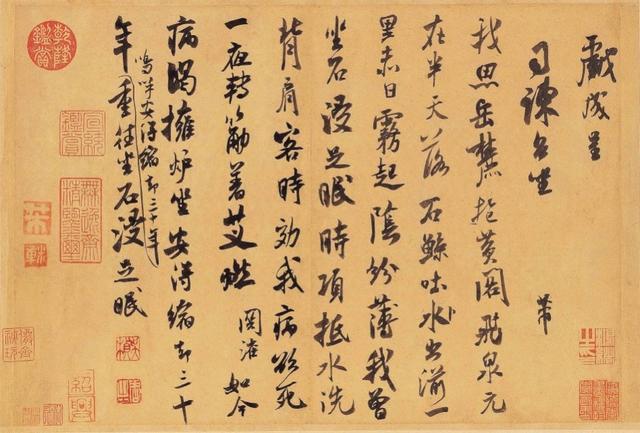 戲成呈
司諫台坐
芾
我思岳麓抱黃閣飛泉元
在半天落石鯨吐水出湔一
里赤日霧起陰紛薄我曾
坐石浸足眠時項抵水洗
背肩客時效我病欲死
一夜轉筋著艾燃 關灌 如今
病渴擁爐坐安得縮却三十
年重往坐石浸足眠
嗚呼安得縮却三十年
乾隆鑑賞
宣統鑑賞
無逸齋精鑒璽
紹興